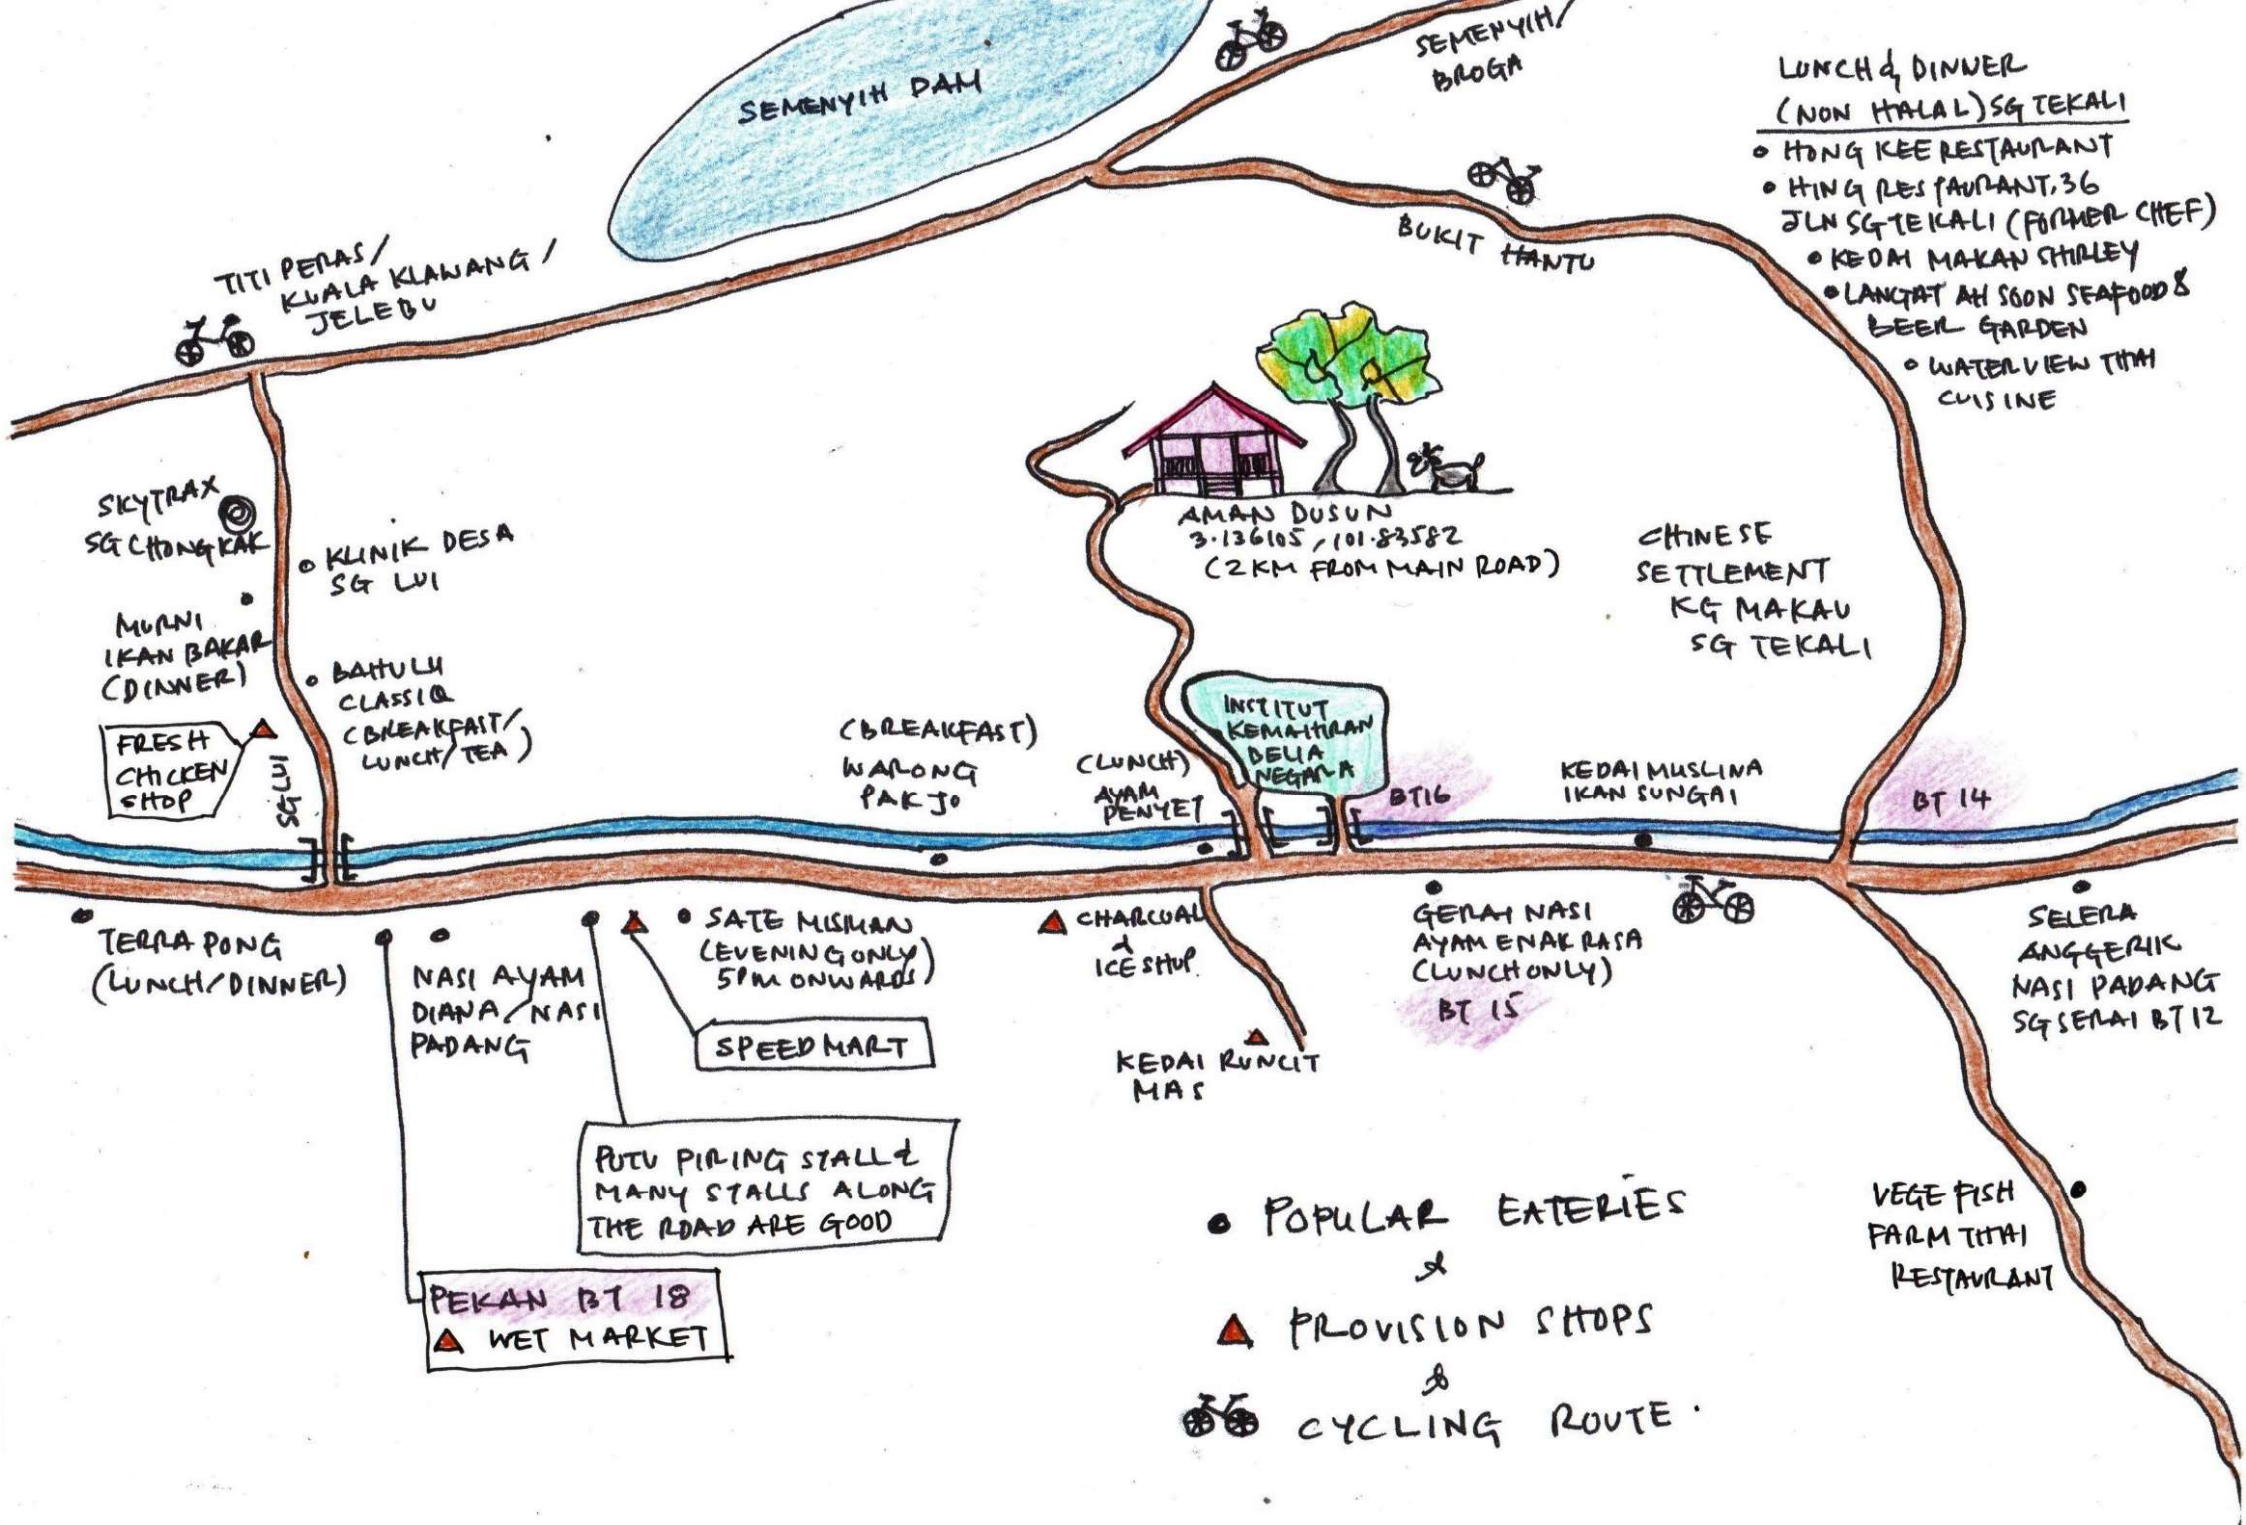 SEMENYIH DAM
SEMENYIH/
BROGA
LUNCH & DINNER
(NON HALAL) SG TEKALI
• HONG KEE RESTAURANT
• HING RESTAURANT, 36
JLN SG TEKALI (FORMER CHEF)
• KEDAI MAKAN SHIRLEY
• LANGAT AH SOON SEAFOOD &
BEER GARDEN
• WATERVIEW THAI
CUISINE
BUKIT HANTU
TITI PERAS/
KUALA KLAWANG/
JELEBU
SKYTRAX
SG CHONGKAK
KLINIK DESA
SG LUI
MURNI
IKAN BAKAR
(DINNER)
BAHULU
CLASSIQ
(BREAKFAST/
LUNCH/TEA)
FRESH
CHICKEN
SHOP
SG LUI
AMAN DUSUN
3.136105, 101.83582
(2 KM FROM MAIN ROAD)
CHINESE
SETTLEMENT
KG MAKAU
SG TEKALI
INSTITUT
KEMAHIRAN
BELIA
NEGARA
(BREAKFAST)
WARONG
PAK JO
(LUNCH)
AYAM
PENYET
BT16
KEDAI MUSLINA
IKAN SUNGAI
BT 14
TERRAPONG
(LUNCH/DINNER)
NASI AYAM
DIANA/NASI
PADANG
SATE MISMAN
(EVENING ONLY)
5PM ONWARDS)
SPEEDMART
CHARCOAL
&
ICE SHOP.
KEDAI RUNCIT
MAS
GERAI NASI
AYAM ENAK RASA
(LUNCH ONLY)
BT 15
SELERA
ANGGERIK
NASI PADANG
SG SERAI BT 12
PUTU PIRING STALL &
MANY STALLS ALONG
THE ROAD ARE GOOD
PEKAN BT 18
WET MARKET
VEGE FISH
FARM THAI
RESTAURANT
• POPULAR EATERIES
&
PROVISION SHOPS
&
CYCLING ROUTE.